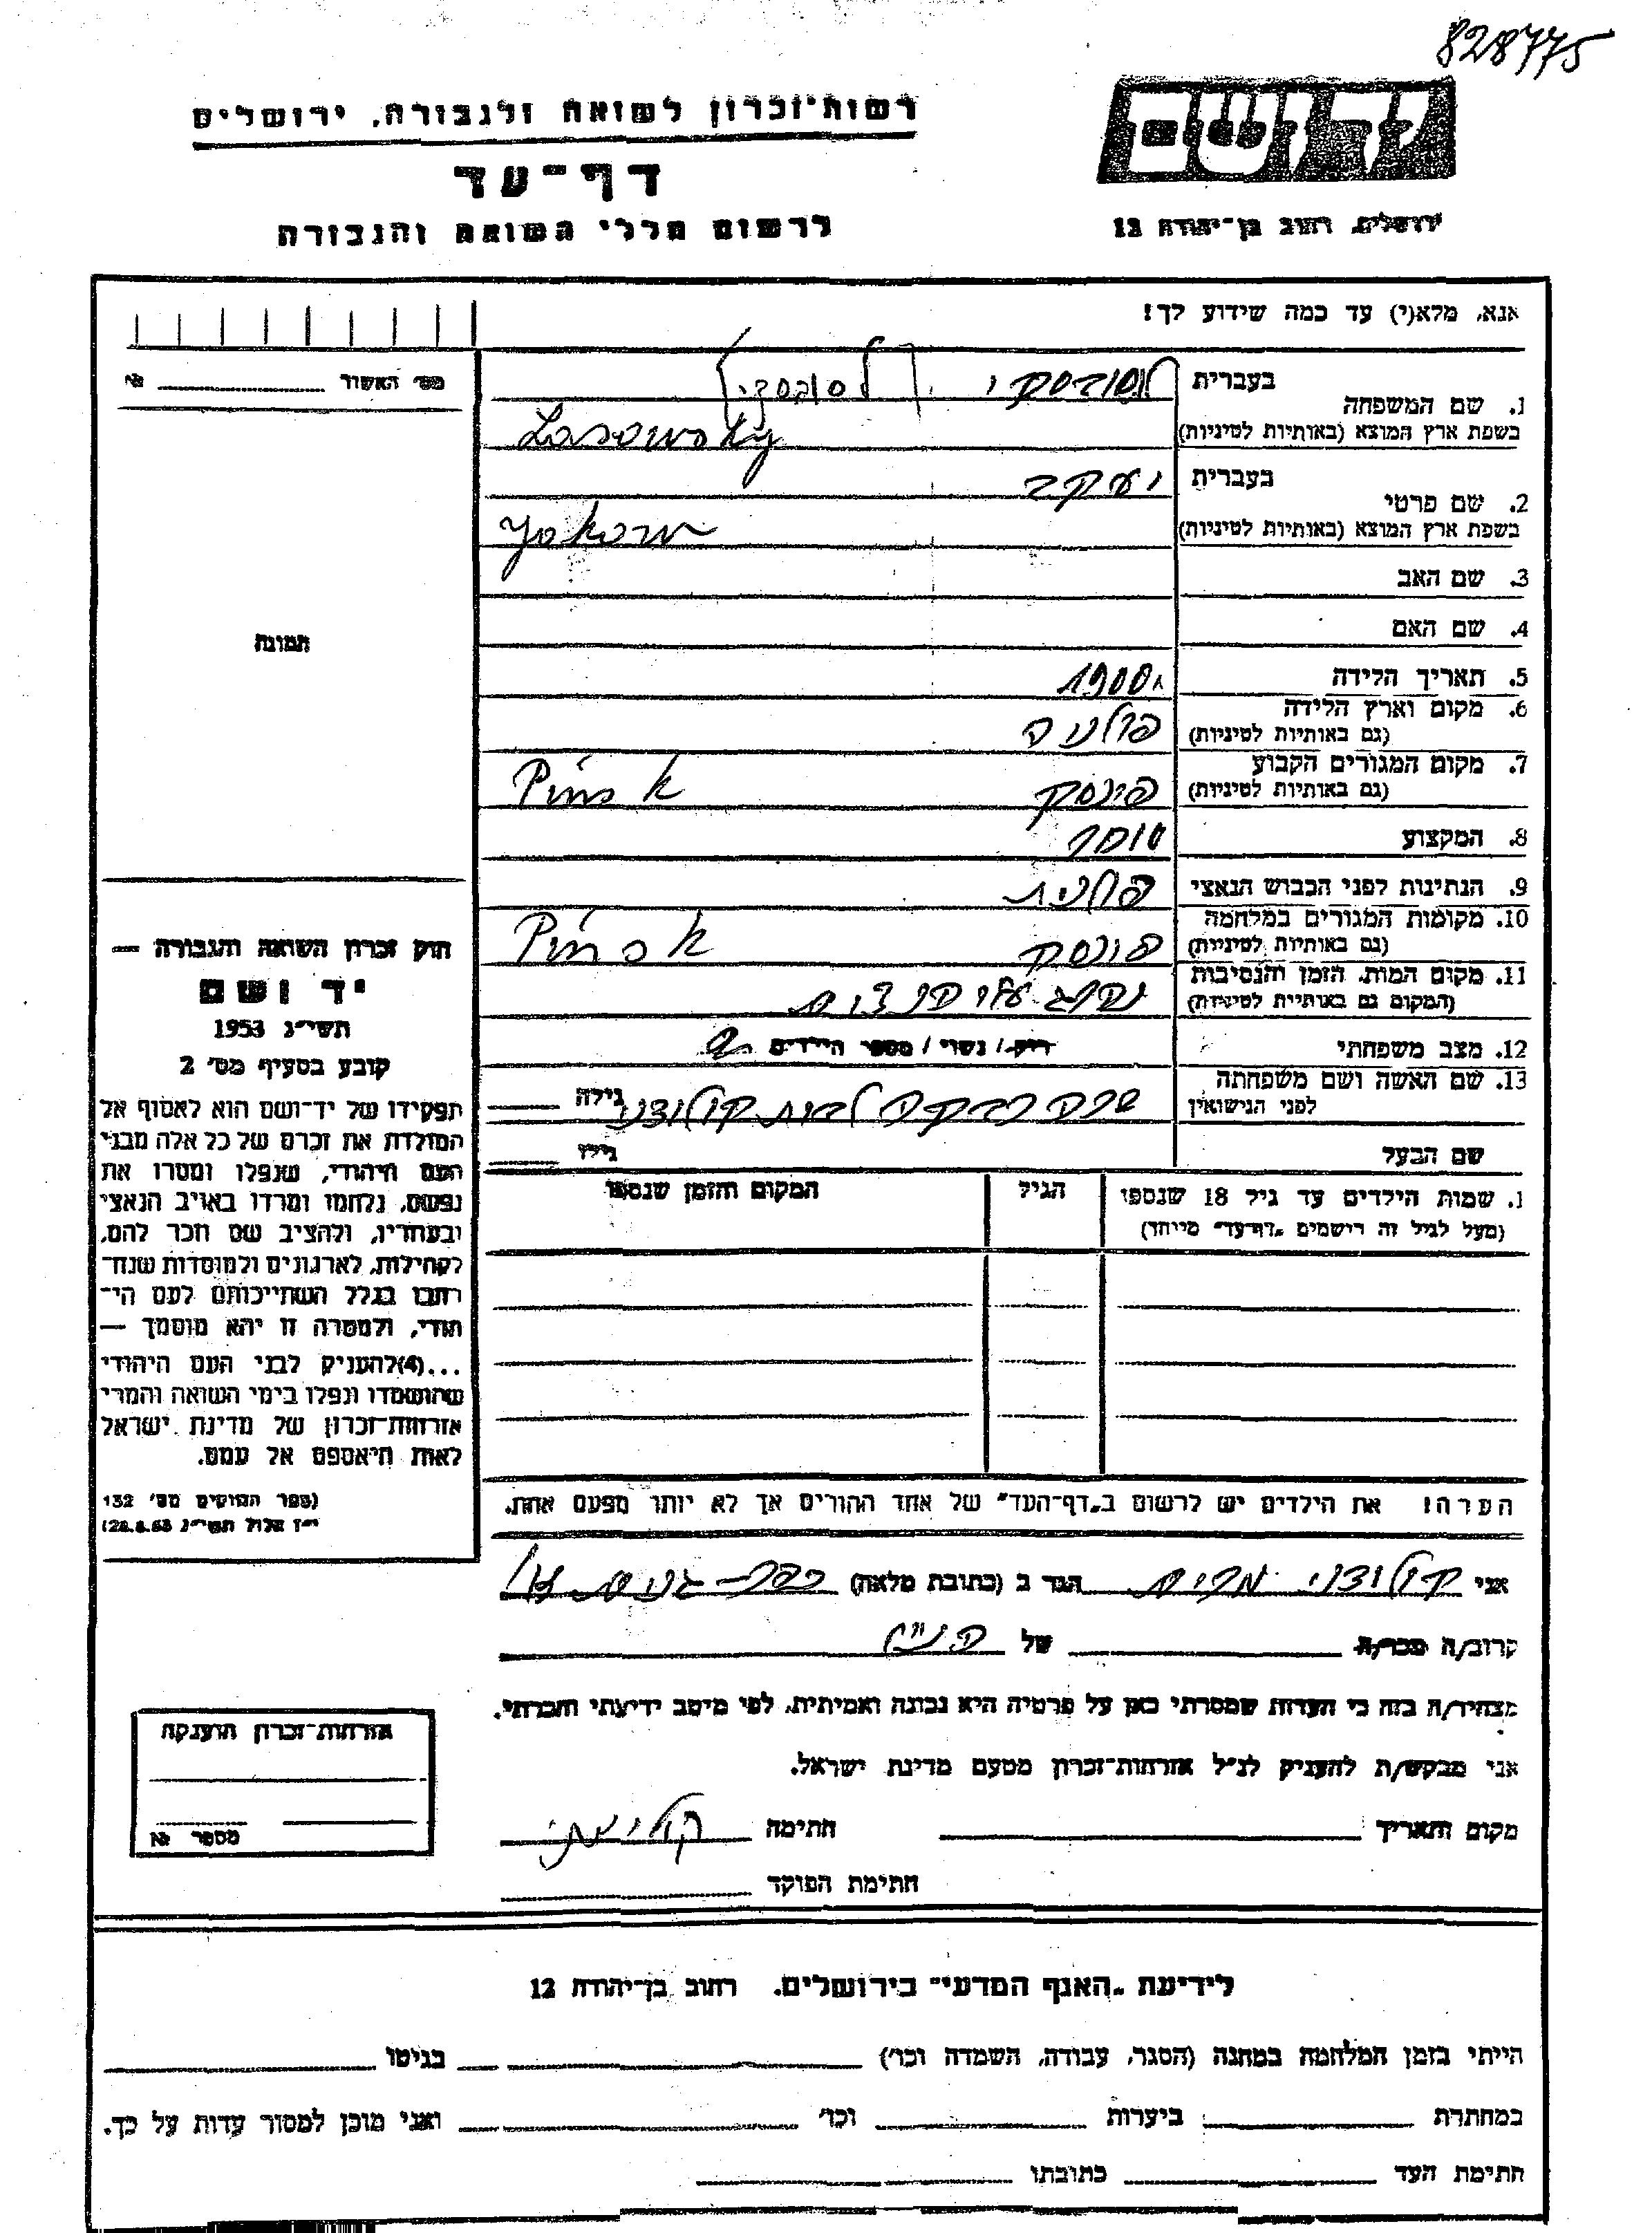 828775
רשות־זכרון לשואה ולגבורה, ירושלים
יד ושם
דף־עד
ירושלים, רחוב בן־יהודה 12
לרשום חללי השואה והגבורה
אנא, מלא(י) עד כמה שידוע לך!
מס׳ האשור № 
1. שם המשפחה
בעברית לסובסקי [לסובסקי]
בשפת ארץ המוצא (באותיות לטיניות) Lasowsky
2. שם פרטי
בעברית יעקב
בשפת ארץ המוצא (באותיות לטיניות) Yakow
3. שם האב
4. שם האם
תמונה
5. תאריך הלידה 1900
6. מקום וארץ הלידה
(גם באותיות לטיניות) פולניה
7. מקום המגורים הקבוע
(גם באותיות לטיניות) פינסק Pinsk
8. המקצוע סוחר
9. הנתינות לפני הכבוש הנאצי פולנית
10. מקומות המגורים במלחמה
(גם באותיות לטיניות) פינסק Pinsk
11. מקום המות, הזמן והנסיבות
(המקום גם באותיות לטיניות)
12. מצב משפחתי רווק / נשוי / מספר הילדים 2
13. שם האשה ושם משפחתה
לפני הנישואין שרה רבקה לבית קולודני גילה
שם הבעל גילו
חוק זכרון השואה והגבורה —
יד ושם
תשי״ג 1953
קובע בסעיף מס׳ 2
תפקידו של יד־ושם הוא לאסוף אל
המולדת את זכרם של כל אלה מבני
העם היהודי, שנפלו ומסרו את
נפשם, נלחמו ומרדו באויב הנאצי
ובעוזריו, ולהציב שם וזכר להם,
לקהילות, לארגונים ולמוסדות שנח־
רבו בגלל השתייכותם לעם הי־
הודי, ולמטרה זו יהא מוסמך —
...(4)להעניק לבני העם היהודי
שהושמדו ונפלו בימי השואה והמרי
אזרחות־זכרון של מדינת ישראל
לאות היאספם אל עמם.
(ספר החוקים מס׳ 132
י״ז אלול תשי״ג 28.8.53)
1. שמות הילדים עד גיל 18 שנספו
(מעל לגיל זה רישמים „דף־עד״ מייחד)
הגיל
המקום והזמן שנספו
הערה! את הילדים יש לרשום ב„דף־העד״ של אחד ההורים אך לא יותר מפעם אחת.
אני קולודני מרים הגר ב (כתובת מלאה) כפר־גנים א׳
קרוב/ה מכר/ה של הנ״ל
מצהיר/ה בזה כי העדות שמסרתי כאן על פרטיה היא נכונה ואמיתית, לפי מיטב ידיעתי והכרתי.
אני מבקש/ת להעניק לנ״ל אזרחות־זכרון מטעם מדינת ישראל.
מקום ותאריך חתימה קולודני
חתימת הפוקד
אזרחות־זכרון הוענקה
מספר №
לידיעת „האגף המדעי״ בירושלים. רחוב בן־יהודה 12
הייתי בזמן המלחמה במחנה (הסגר, עבודה, השמדה וכו׳) בגיטו
במחתרת ביערות וכו׳ ואני מוכן למסור עדות על כך.
חתימת העד כתובתו